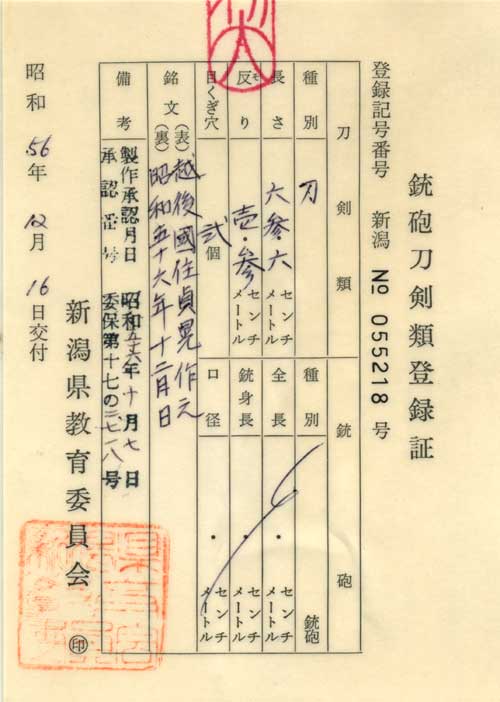 銃砲刀剣類登録証
登録記号番号 新潟 № 055218 号
刀剣類
銃砲
種別 刀
種別 銃砲
長さ 六参・六 センチメートル
全長 ・ センチメートル
反り 壱・参 センチメートル
銃身長 ・ センチメートル
目くぎ穴 弐個
口径 ・ センチメートル
銘文
(表) 越後國住貞晃作之
(裏) 昭和五十六年十二月日
備考
製作承認月日 昭和五六年十月七日
承認番号 委保第十七の三七一八号
昭和56年12月16日交付
新潟県教育委員会 印